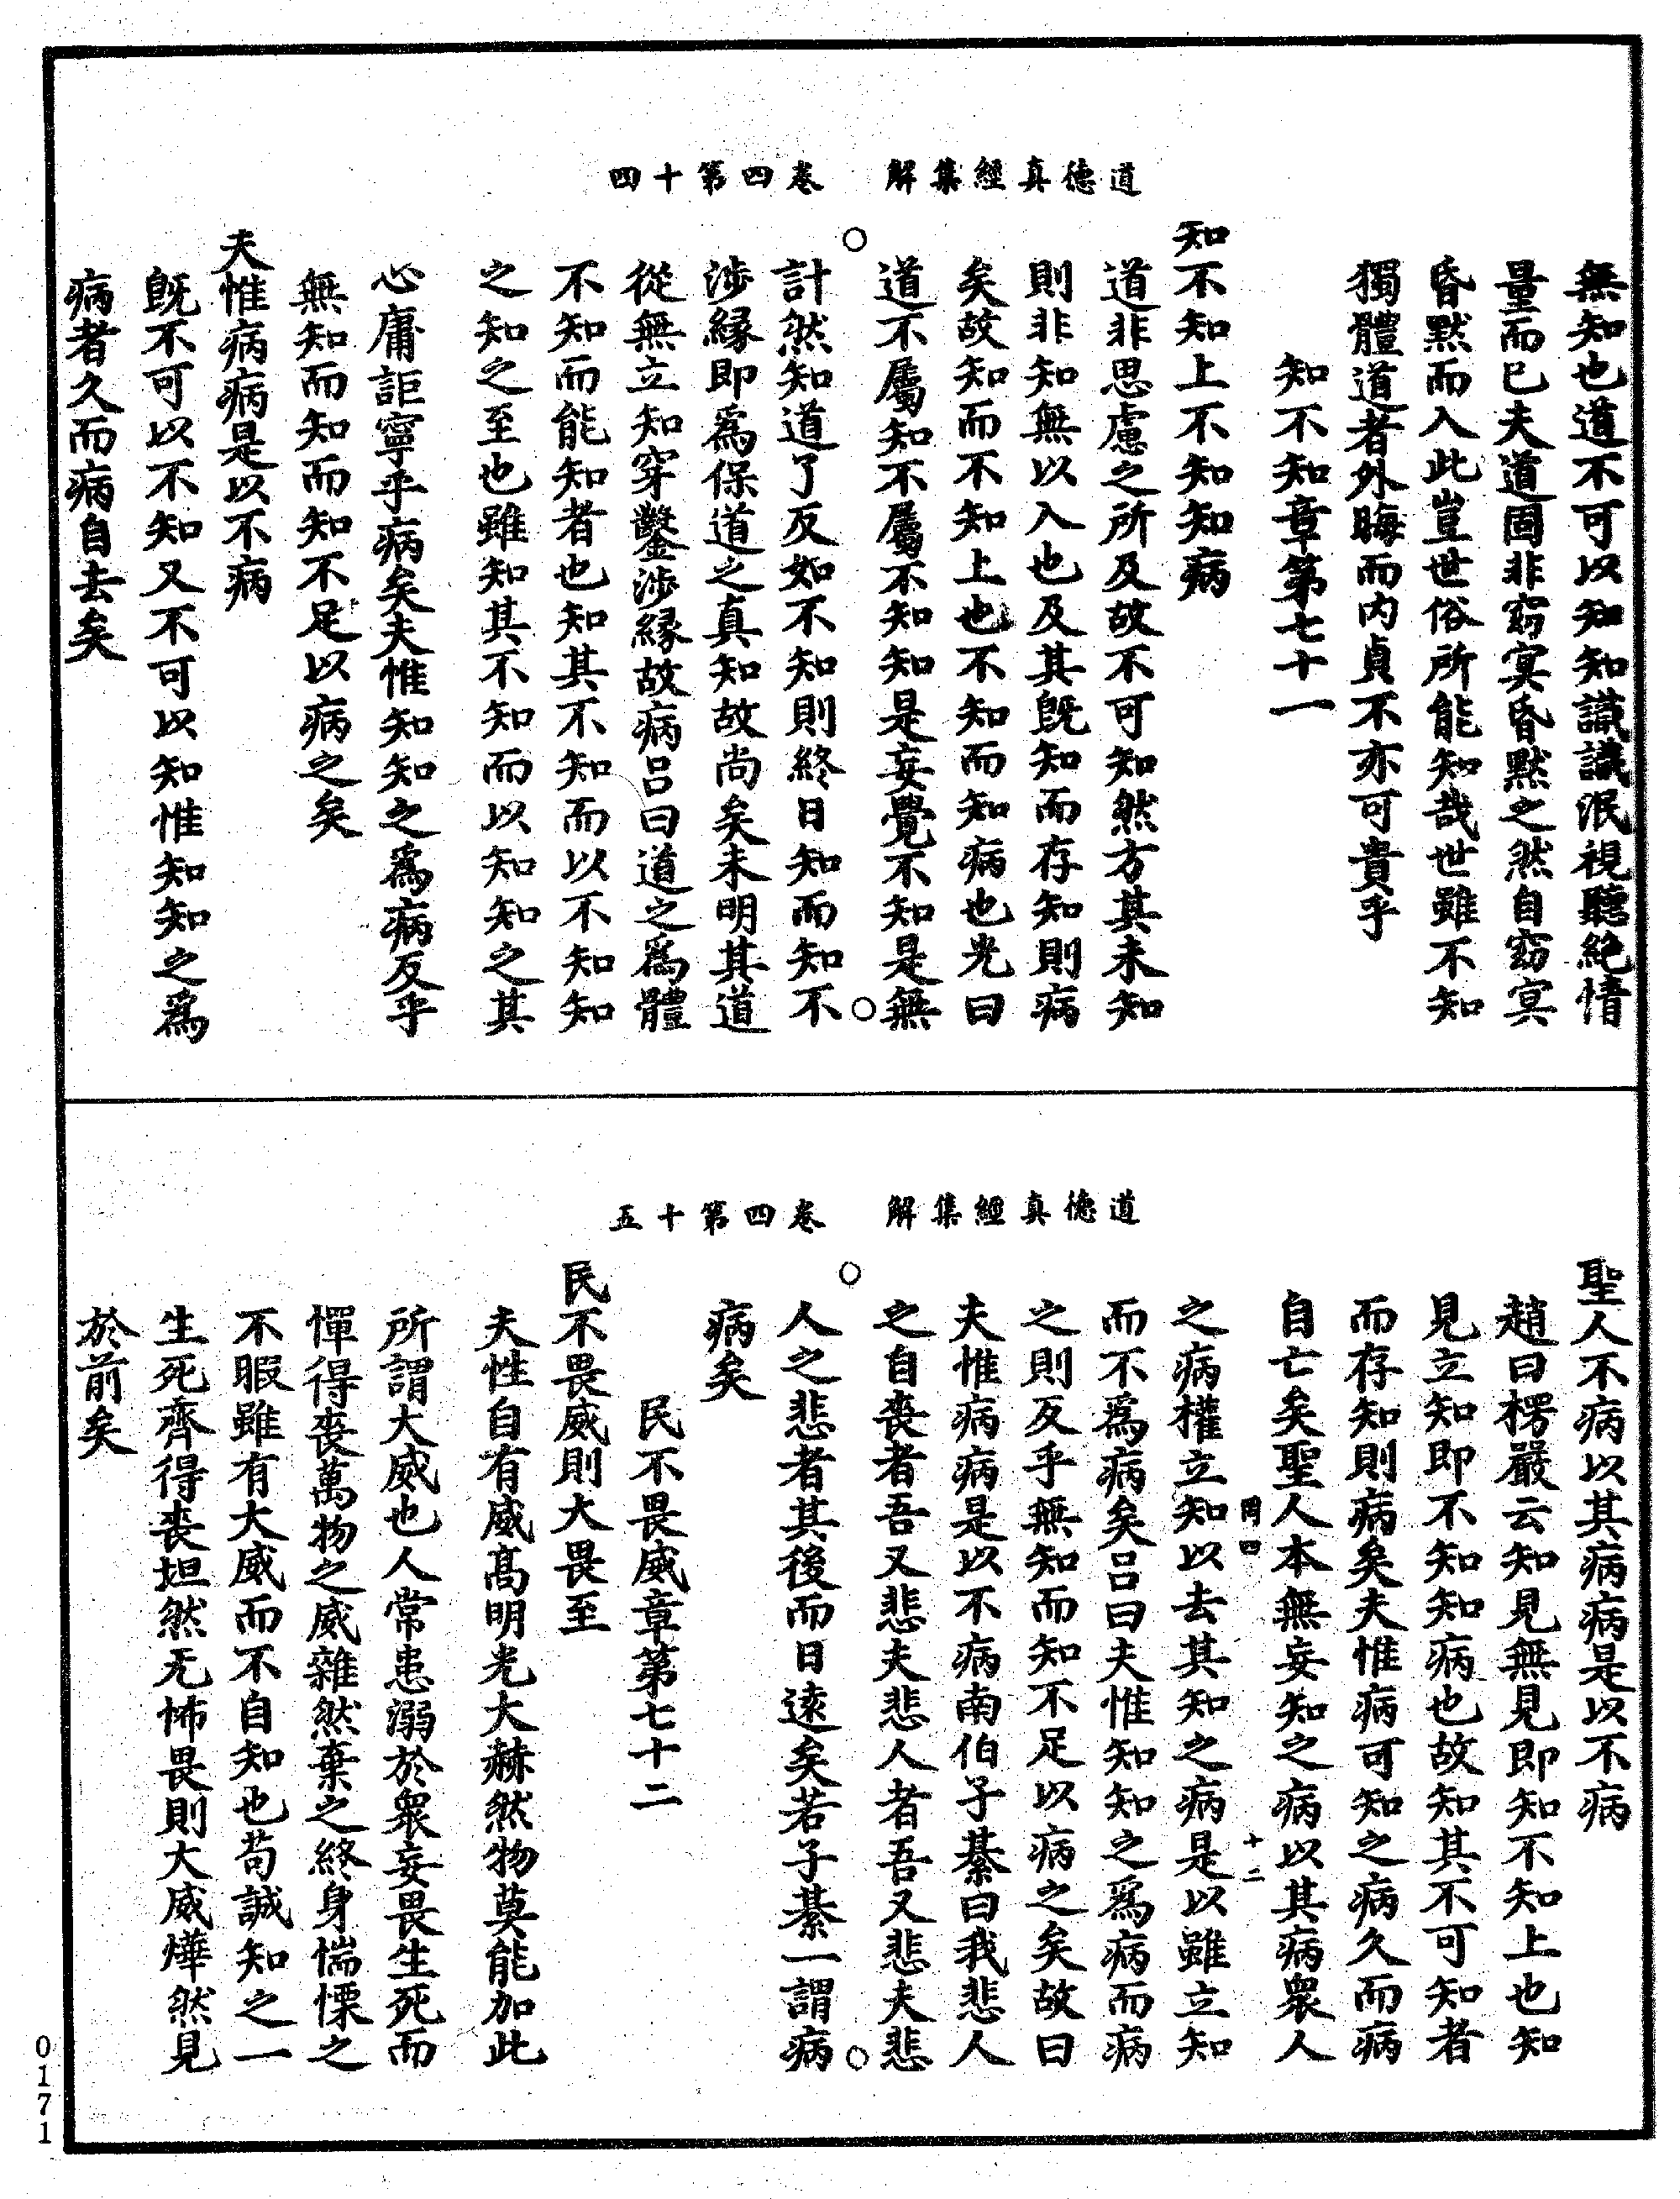 道德真經集解　卷四第十四
無知也道不可以知知識識泯視聽絶情
量而已夫道固非窈冥昏默之然自窈冥
昏默而入此豈世俗所能知哉世雖不知
獨體道者外晦而内貞不亦可貴乎
知不知章第七十一
知不知上不知知病
道非思慮之所及故不可知然方其未知
則非知無以入也及其既知而存知則病
矣故知而不知上也不知而知病也光曰
道不屬知不屬不知知是妄覺不知是無
計然知道了反如不知則終日知而知不
涉緣即爲保道之真知故尚矣未明其道
從無立知穿鑿涉緣故病吕曰道之爲體
不知而能知者也知其不知而以不知知
之知之至也雖知其不知而以知知之其
心庸詎寧乎病矣夫惟知知之爲病反乎
無知而知而知不足以病之矣
夫惟病病是以不病
既不可以不知又不可以知惟知知之爲
病者久而病自去矣
道德真經集解　卷四第十五
聖人不病以其病病是以不病
趙曰楞嚴云知見無見即知不知上也知
見立知即不知知病也故知其不可知者
而存知則病矣夫惟病可知之病久而病
自亡矣聖人本無妄知之病以其病衆人
罔四　十二
之病權立知以去其知之病是以雖立知
而不爲病矣吕曰夫惟知知之爲病而病
之則反乎無知而知不足以病之矣故曰
夫惟病病是以不病南伯子綦曰我悲人
之自喪者吾又悲夫悲人者吾又悲夫悲
人之悲者其後而日遠矣若子綦一謂病
病矣
民不畏威章第七十二
民不畏威則大畏至
夫性自有威高明光大赫然物莫能加此
所謂大威也人常患溺於衆妄畏生死而
憚得喪萬物之威雜然棄之終身惴慄之
不暇雖有大威而不自知也苟誠知之一
生死齊得喪坦然无怖畏則大威燁然見
於前矣
0171